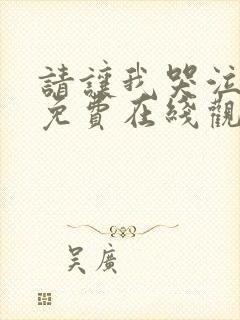 請讓我哭泣
免費在綫觀
吴廣